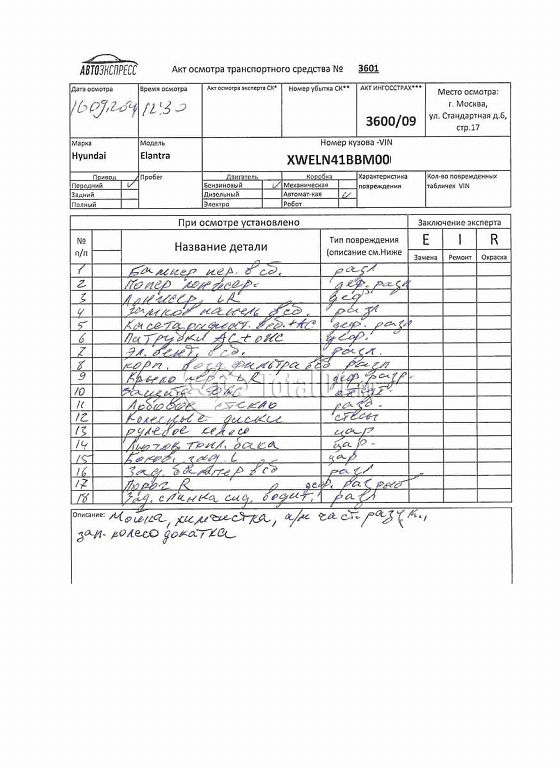 АВТОЭКСПРЕСС
Акт осмотра транспортного средства № 3601
Дата осмотра
Время осмотра
Акт осмотра эксперта СК*
Номер убытка СК**
АКТ ИНГОССТРАХ***
Место осмотра:
г. Москва,
ул. Стандартная д.6,
стр.17
12:30
3600/09
Марка
Модель
Номер кузова -VIN
Hyundai
Elantra
XWELN41BBM00
Привод
Пробег
Двигатель
Коробка
Характеристика повреждения
Кол-во поврежденных табличек VIN
Передний
Бензиновый
Механическая
Задний
Дизельный
Автомат-кая
Полный
Электро
Робот
При осмотре установлено
Заключение эксперта
№ п/п
Название детали
Тип повреждения (описание см.Ниже
E
I
R
Замена
Ремонт
Окраска
1 Бампер пер. в сб. разл
2 деф. разл
3 Лонжер. LR деф
4 Замков панель в сб. разл
5 Кассета радиат. в сб. +AC деф. разл
6 Патрубки AC+ОЖ деф.
7 Эл. вент. в сб. разл.
8 корп. возд фильтра в сб разл
9 Крыло пер. LR деф. разр.
10 Защита
11 Лобовое стекло разб.
12 Колесные диски
13 рулевое колесо цар
14 Лючок топл. бака цар.
15 Боков. зад. L цар
16 Зад. бампер в сб разл
17 Порог R деф.
18 Зад. спинка сид. водит. разл
Описание: Мойка, химчистка, а/м част. разук.,
зап. колесо докатка